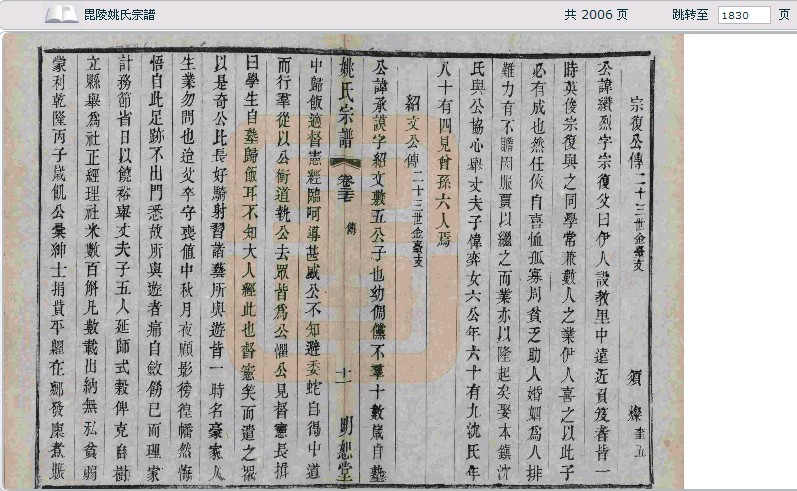 毘陵姚氏宗譜
共 2006 页
跳转至 1830 页
宗復公傳 二十三世金臺支 須燦 奎五
公諱纘烈字宗復父曰伊人設教里中遠近負笈者皆一
時英俊宗復與之同學常兼數人之業伊人喜之以此子
必有成也然任俠自喜恤孤寡周貧乏助人婚姻為人排
難力有不贍因服賈以繼之而業亦以隆起矣娶本鎮沈
氏與公協心舉丈夫子偉弈女六公年六十有九沈氏年
八十有四見曾孫六人焉
紹文公傳 二十三世金臺支
公諱承謨字紹文數五公子也幼倜儻不羣十數歲自塾
姚氏宗譜 卷三 傳 十一 明恕堂
中歸飯適督憲經臨呵導甚威公不知避委蛇自得中道
而行羣從以公衝道執公去眾皆為公懼公見督憲長揖
曰學生自塾歸飯耳不知大人經此也督憲笑而遣之眾
以是奇公比長好騎射習諸藝所與遊皆一時名豪家人
生業勿問也迨父卒守喪值中秋月夜顧影徬徨幡然悔
悟自此足跡不出門悉故所與遊者痛自斂飭已而理家
計務節省日以饒裕舉丈夫子五人延師式穀俾克自樹
立縣舉為社正經理社米數百斛凡數載出納無私貧弱
蒙利乾隆丙子歲飢公彙紳士捐貲平糶在鄉發粟煮賑